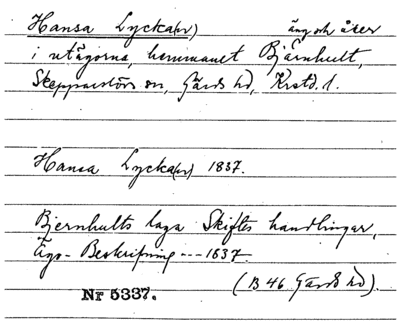 Hansa Lycka(r) äng och åker
i utägorna, hemmanet Bjärnhult,
Skepparslövs sn, Gärds hd, Krstd. l.
Hansa Lycka(r) 1837.
Bjernhults laga Skiftes handlingar,
Ägo-Beskrifning --- 1837
(B 46 Gärds hd).
Nr 5337.